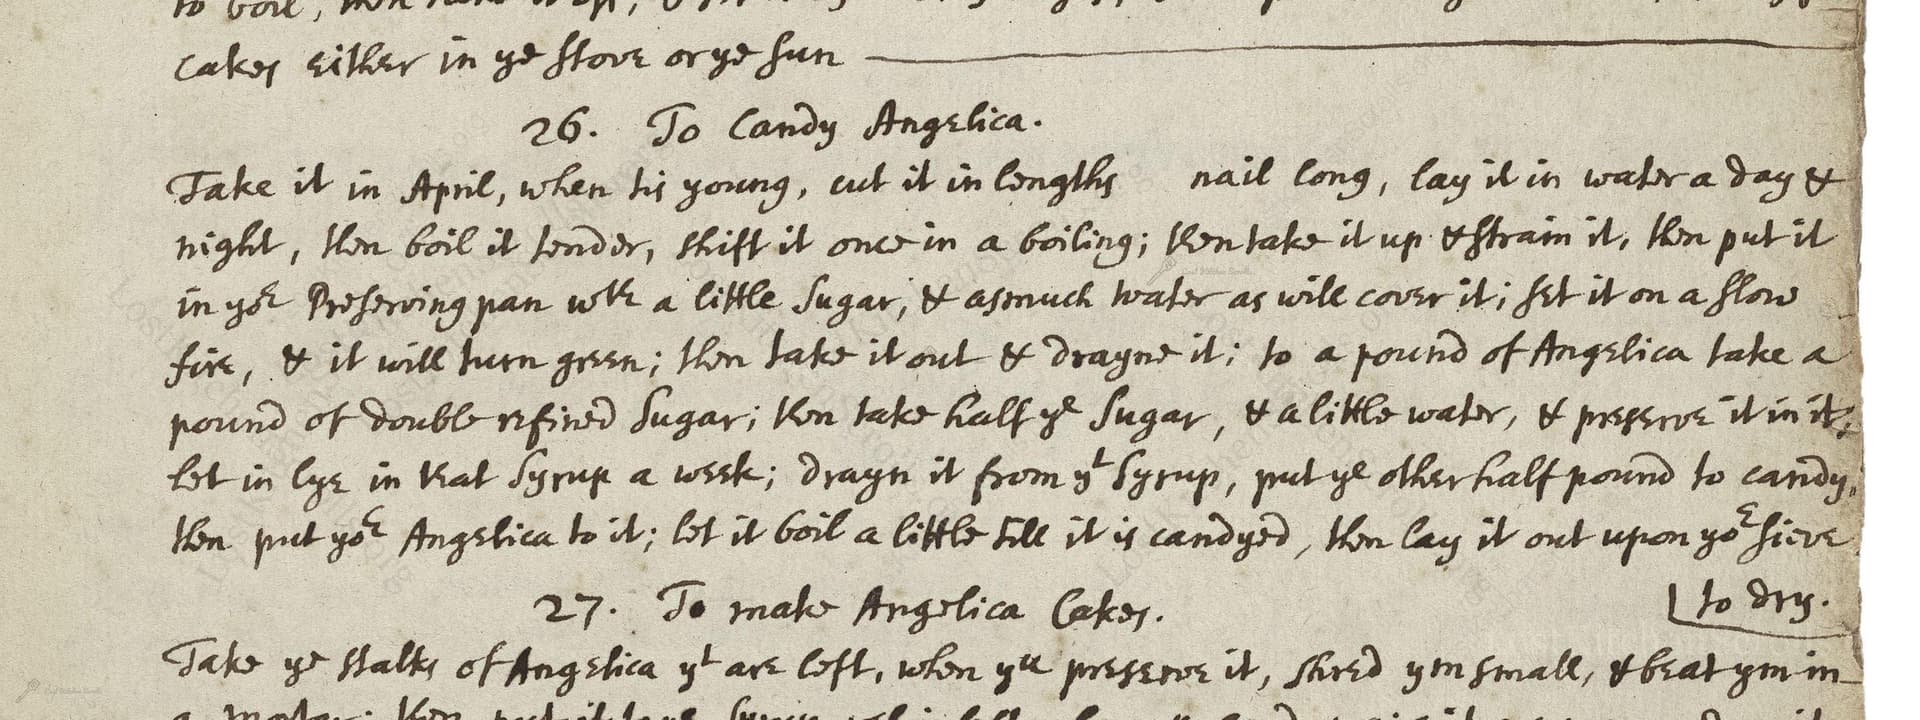 to boil, then
cakes either in ye stove or ye sun
26. To Candy Angelica.
Take it in April, when tis young, cut it in lengths nail long, lay it in water a day &
night, then boil it tender, shift it once in a boiling; then take it up & strain it, then put it
in yor Preserving pan wth a little Sugar, & asmuch water as will cover it; set it on a slow
fire, & it will turn green; then take it out & drayne it; to a pound of Angelica take a
pound of double refined Sugar; then take half ye Sugar, & a little water, & preserve it in it;
let in lye in that Syrup a week; drayn it from yt Syrup, put ye other half pound to candy,
then put yor Angelica to it; let it boil a little till it is candyed, then lay it out upon yor sieve
to dry.
27. To make Angelica Cakes.
Take ye stalks of Angelica yt are left, when yu preserve it, shred ym small, & beat ym in